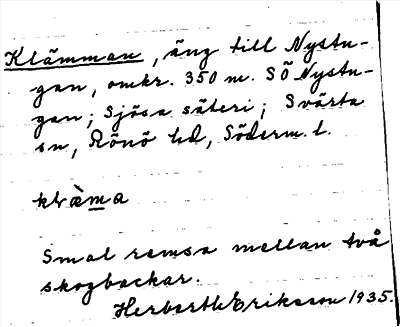 Klämman, äng till Nystu-
gan, omkr. 350 m. SÖ Nystu-
gan; Sjösa säteri; Svärta
sn, Rönö hd, Söderm. l.
Smal remsa mellan två
skogbackar.
Herbert Erikson 1935.